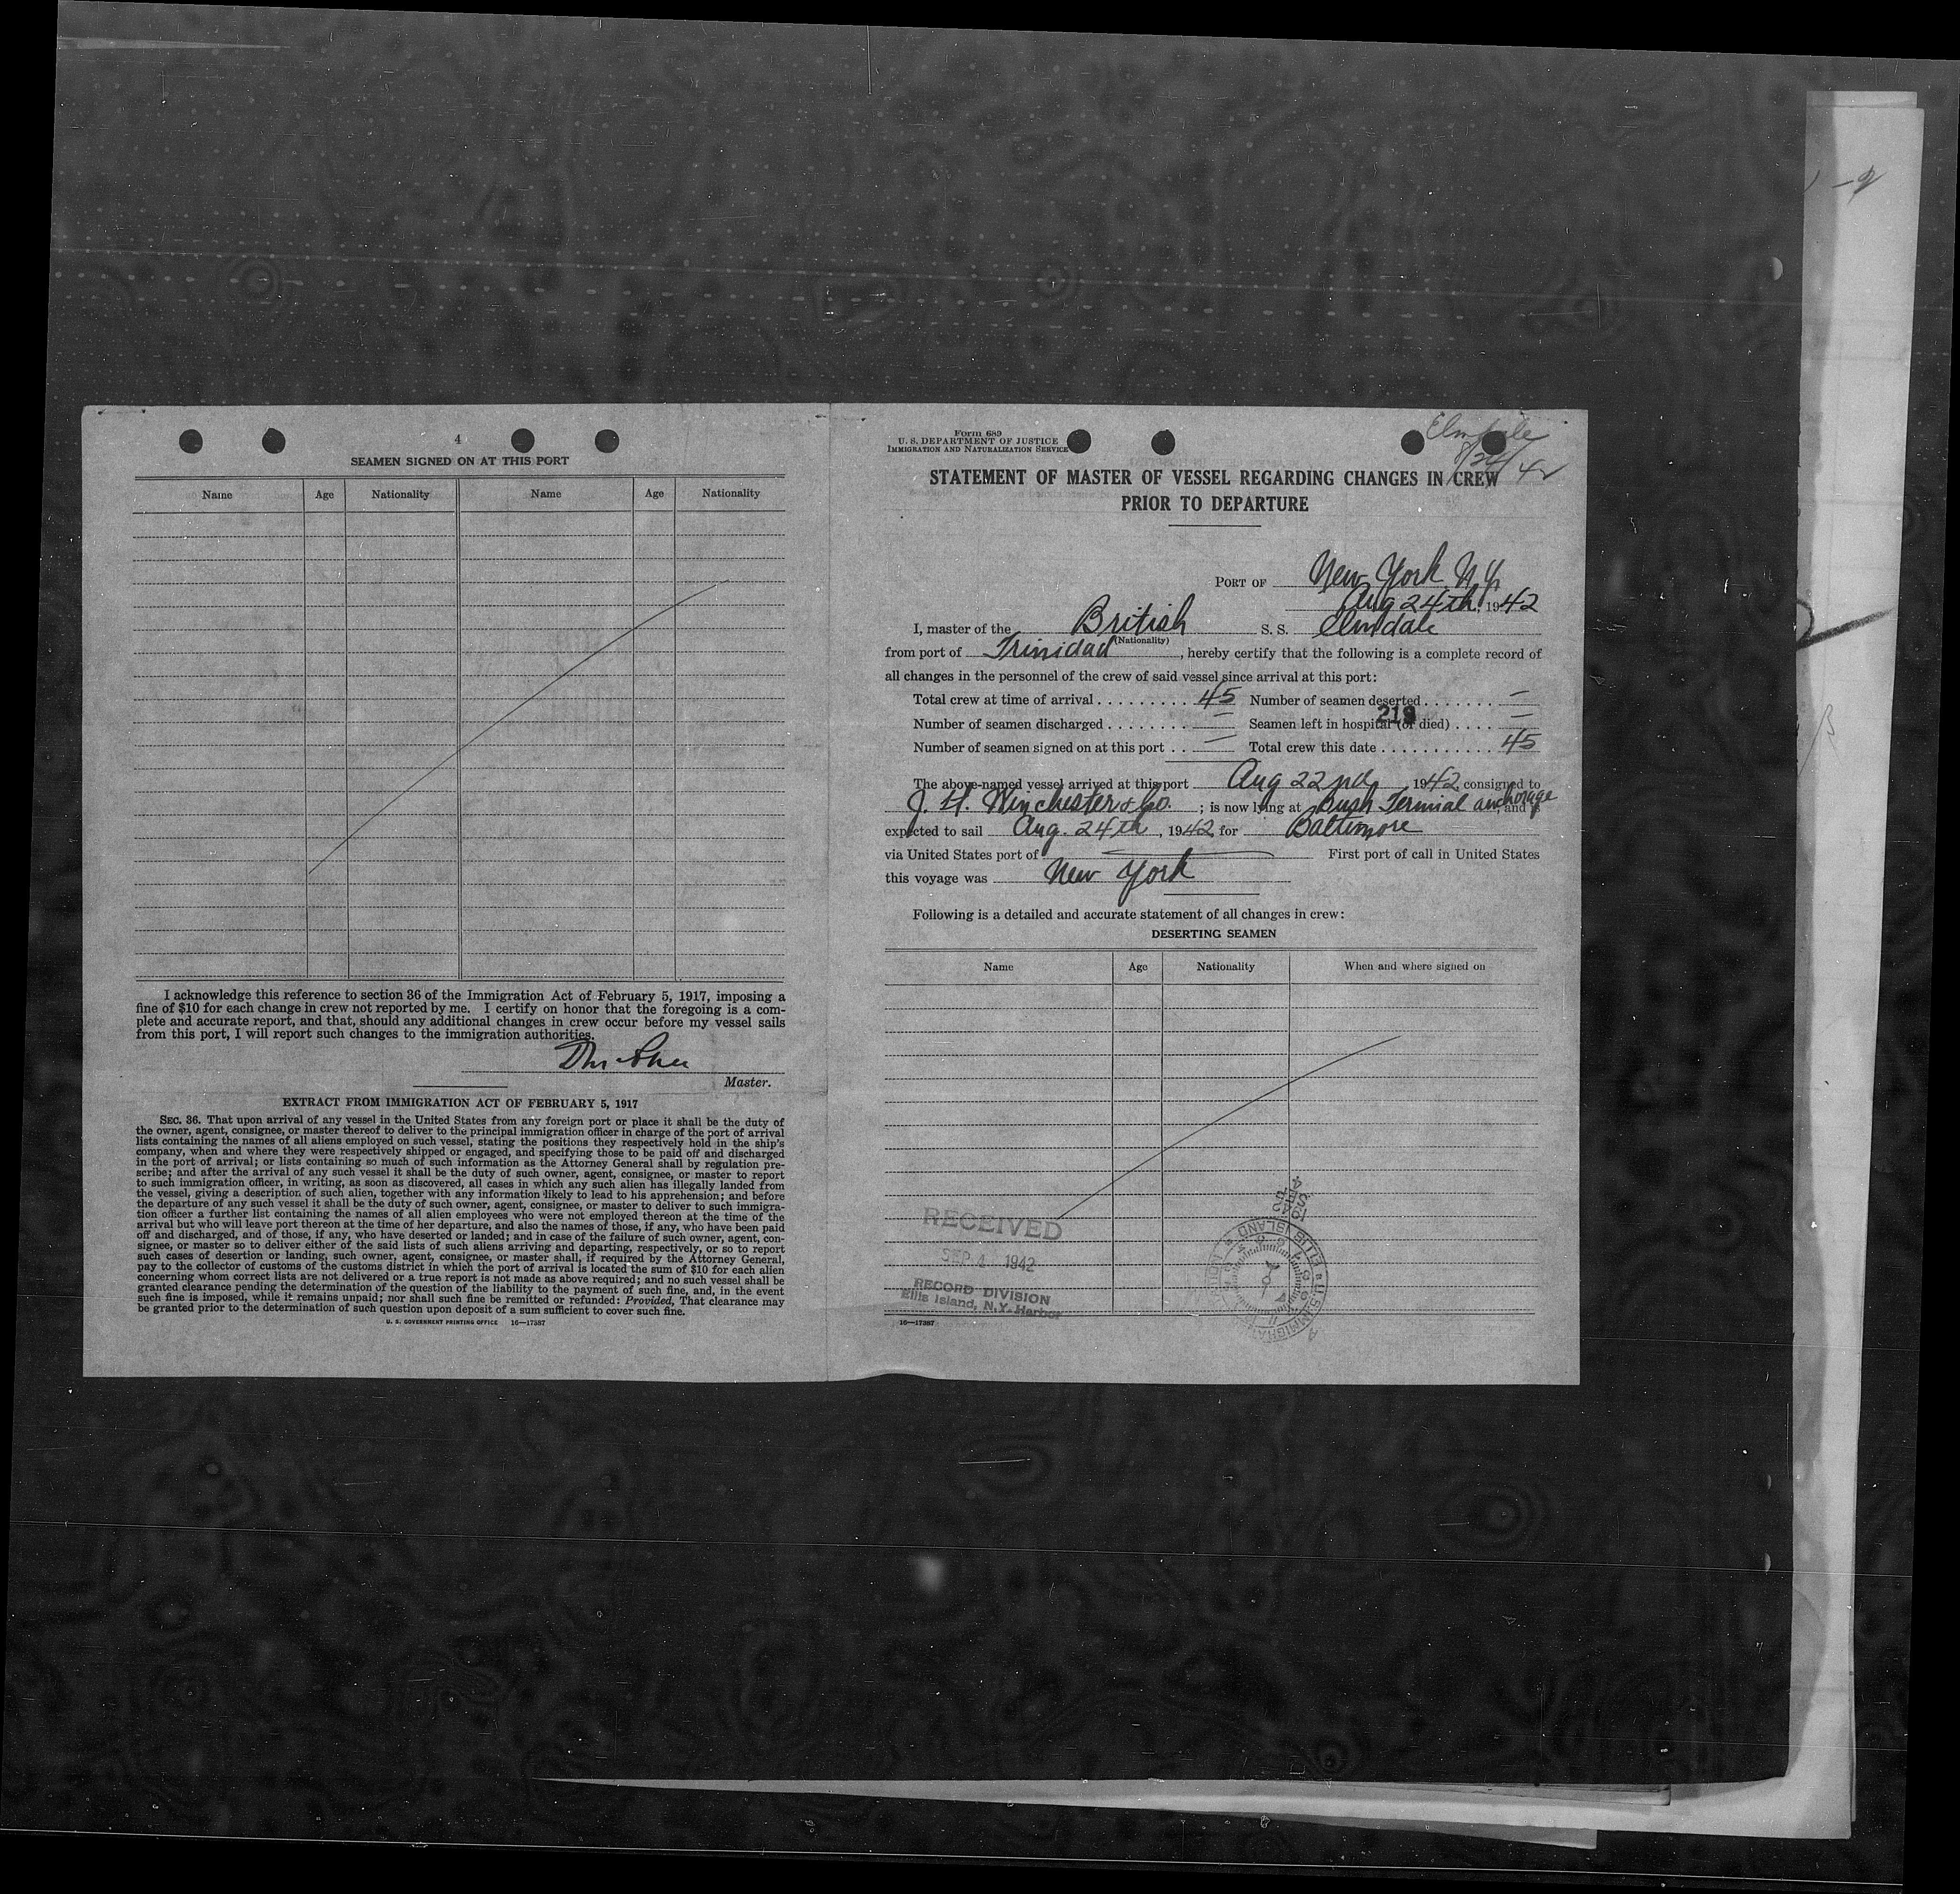 4
SEAMEN SIGNED ON AT THIS PORT
Name Age Nationality Name Age Nationality
I acknowledge this reference to section 36 of the Immigration Act of February 5, 1917, imposing a
fine of $10 for each change in crew not reported by me. I certify on honor that the foregoing is a com-
plete and accurate report, and that, should any additional changes in crew occur before my vessel sails
from this port, I will report such changes to the immigration authorities.
Master.
EXTRACT FROM IMMIGRATION ACT OF FEBRUARY 5, 1917
SEC. 36. That upon arrival of any vessel in the United States from any foreign port or place it shall be the duty of
the owner, agent, consignee, or master thereof to deliver to the principal immigration officer in charge of the port of arrival
lists containing the names of all aliens employed on such vessel, stating the positions they respectively hold in the ship's
company, when and where they were respectively shipped or engaged, and specifying those to be paid off and discharged
in the port of arrival; or lists containing so much of such information as the Attorney General shall by regulation pre-
scribe; and after the arrival of any such vessel it shall be the duty of such owner, agent, consignee, or master to report
to such immigration officer, in writing, as soon as discovered, all cases in which any such alien has illegally landed from
the vessel, giving a description of such alien, together with any information likely to lead to his apprehension; and before
the departure of any such vessel it shall be the duty of such owner, agent, consignee, or master to deliver to such immigra-
tion officer a further list containing the names of all alien employees who were not employed thereon at the time of the
arrival but who will leave port thereon at the time of her departure, and also the names of those, if any, who have been paid
off and discharged, and of those, if any, who have deserted or landed; and in case of the failure of such owner, agent, con-
signee, or master so to deliver either of the said lists of such aliens arriving and departing, respectively, or so to report
such cases of desertion or landing, such owner, agent, consignee, or master shall, if required by the Attorney General,
pay to the collector of customs of the customs district in which the port of arrival is located the sum of $10 for each alien
concerning whom correct lists are not delivered or a true report is not made as above required; and no such vessel shall be
granted clearance pending the determination of the question of the liability to the payment of such fine, and, in the event
such fine is imposed, while it remains unpaid; nor shall such fine be remitted or refunded: Provided, That clearance may
be granted prior to the determination of such question upon deposit of a sum sufficient to cover such fine.
U. S. GOVERNMENT PRINTING OFFICE 16—17387
Form 689
U. S. DEPARTMENT OF JUSTICE
IMMIGRATION AND NATURALIZATION SERVICE
Elmdale
8/24/42
STATEMENT OF MASTER OF VESSEL REGARDING CHANGES IN CREW
PRIOR TO DEPARTURE
PORT OF New York, N.Y.
Aug 24th, 1942
I, master of the British S. S. Elmdale
(Nationality)
from port of Trinidad, hereby certify that the following is a complete record of
all changes in the personnel of the crew of said vessel since arrival at this port:
Total crew at time of arrival 45 Number of seamen deserted —
219
Number of seamen discharged — Seamen left in hospital (or died) —
Number of seamen signed on at this port — Total crew this date 45
The above-named vessel arrived at this port Aug 22nd, 1942, consigned to
J. H. Winchester & Co. ; is now lying at Bush Termial anchorage, and is
expected to sail Aug. 24th, 1942, for Baltimore
via United States port of — First port of call in United States
this voyage was New York
Following is a detailed and accurate statement of all changes in crew:
DESERTING SEAMEN
Name Age Nationality When and where signed on
RECEIVED
SEP 4 - 1942
RECORD DIVISION
Ellis Island, N.Y. Harbor
16—17387